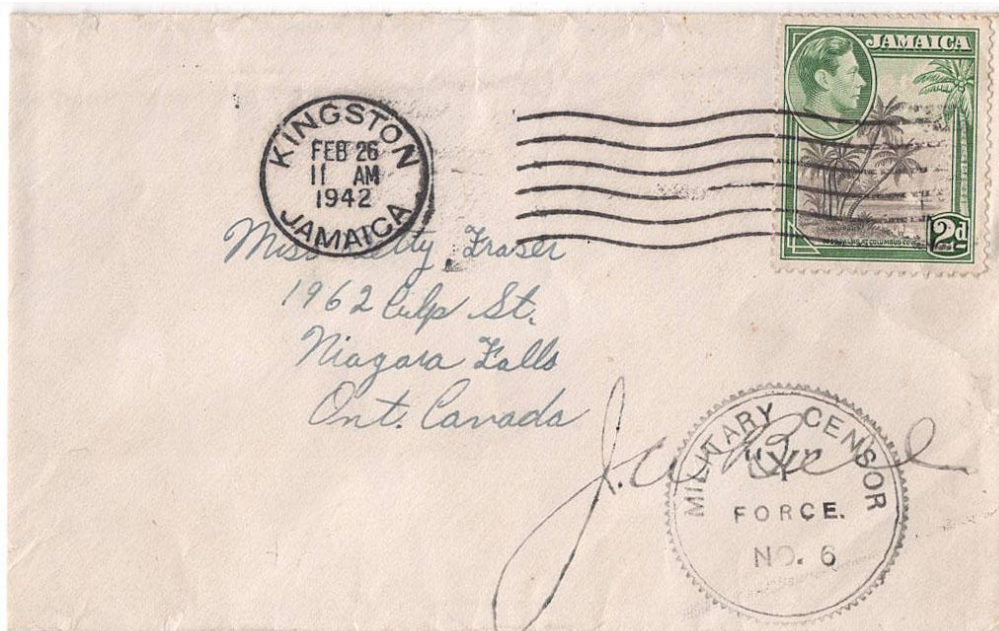 KINGSTON
FEB 26
11 AM
1942
JAMAICA
JAMAICA
2d
Miss Betty Fraser
1962 Culp St.
Niagara Falls
Ont. Canada
MILITARY CENSOR
"Y"
FORCE.
NO. 6